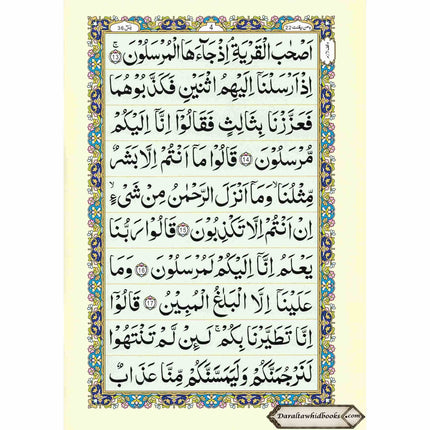 يٰسٓ 36
4
وَمَن يَقْنُتْ 22
اَصْحٰبَ الْقَرْيَةِ ۘ اِذْ جَآءَهَا الْمُرْسَلُوْنَ ۚ ﴿۱۳﴾
اِذْ اَرْسَلْنَاۤ اِلَيْهِمُ اثْنَيْنِ فَكَذَّبُوْهُمَا
فَعَزَّزْنَا بِثَالِثٍ فَقَالُوْۤا اِنَّاۤ اِلَيْكُمْ
مُّرْسَلُوْنَ ﴿۱۴﴾ قَالُوْا مَاۤ اَنْتُمْ اِلَّا بَشَرٌ
مِّثْلُنَا ۙ وَمَاۤ اَنْزَلَ الرَّحْمٰنُ مِنْ شَيْءٍ ۙ
اِنْ اَنْتُمْ اِلَّا تَكْذِبُوْنَ ﴿۱۵﴾ قَالُوْا رَبُّنَا
يَعْلَمُ اِنَّاۤ اِلَيْكُمْ لَمُرْسَلُوْنَ ﴿۱۶﴾ وَمَا
عَلَيْنَاۤ اِلَّا الْبَلٰغُ الْمُبِيْنُ ﴿۱۷﴾ قَالُوْۤا
اِنَّا تَطَيَّرْنَا بِكُمْ ۚ لَئِنْ لَّمْ تَنْتَهُوْا
لَنَرْجُمَنَّكُمْ وَلَيَمَسَّنَّكُمْ مِّنَّا عَذَابٌ
Daraltawhidbooks.com